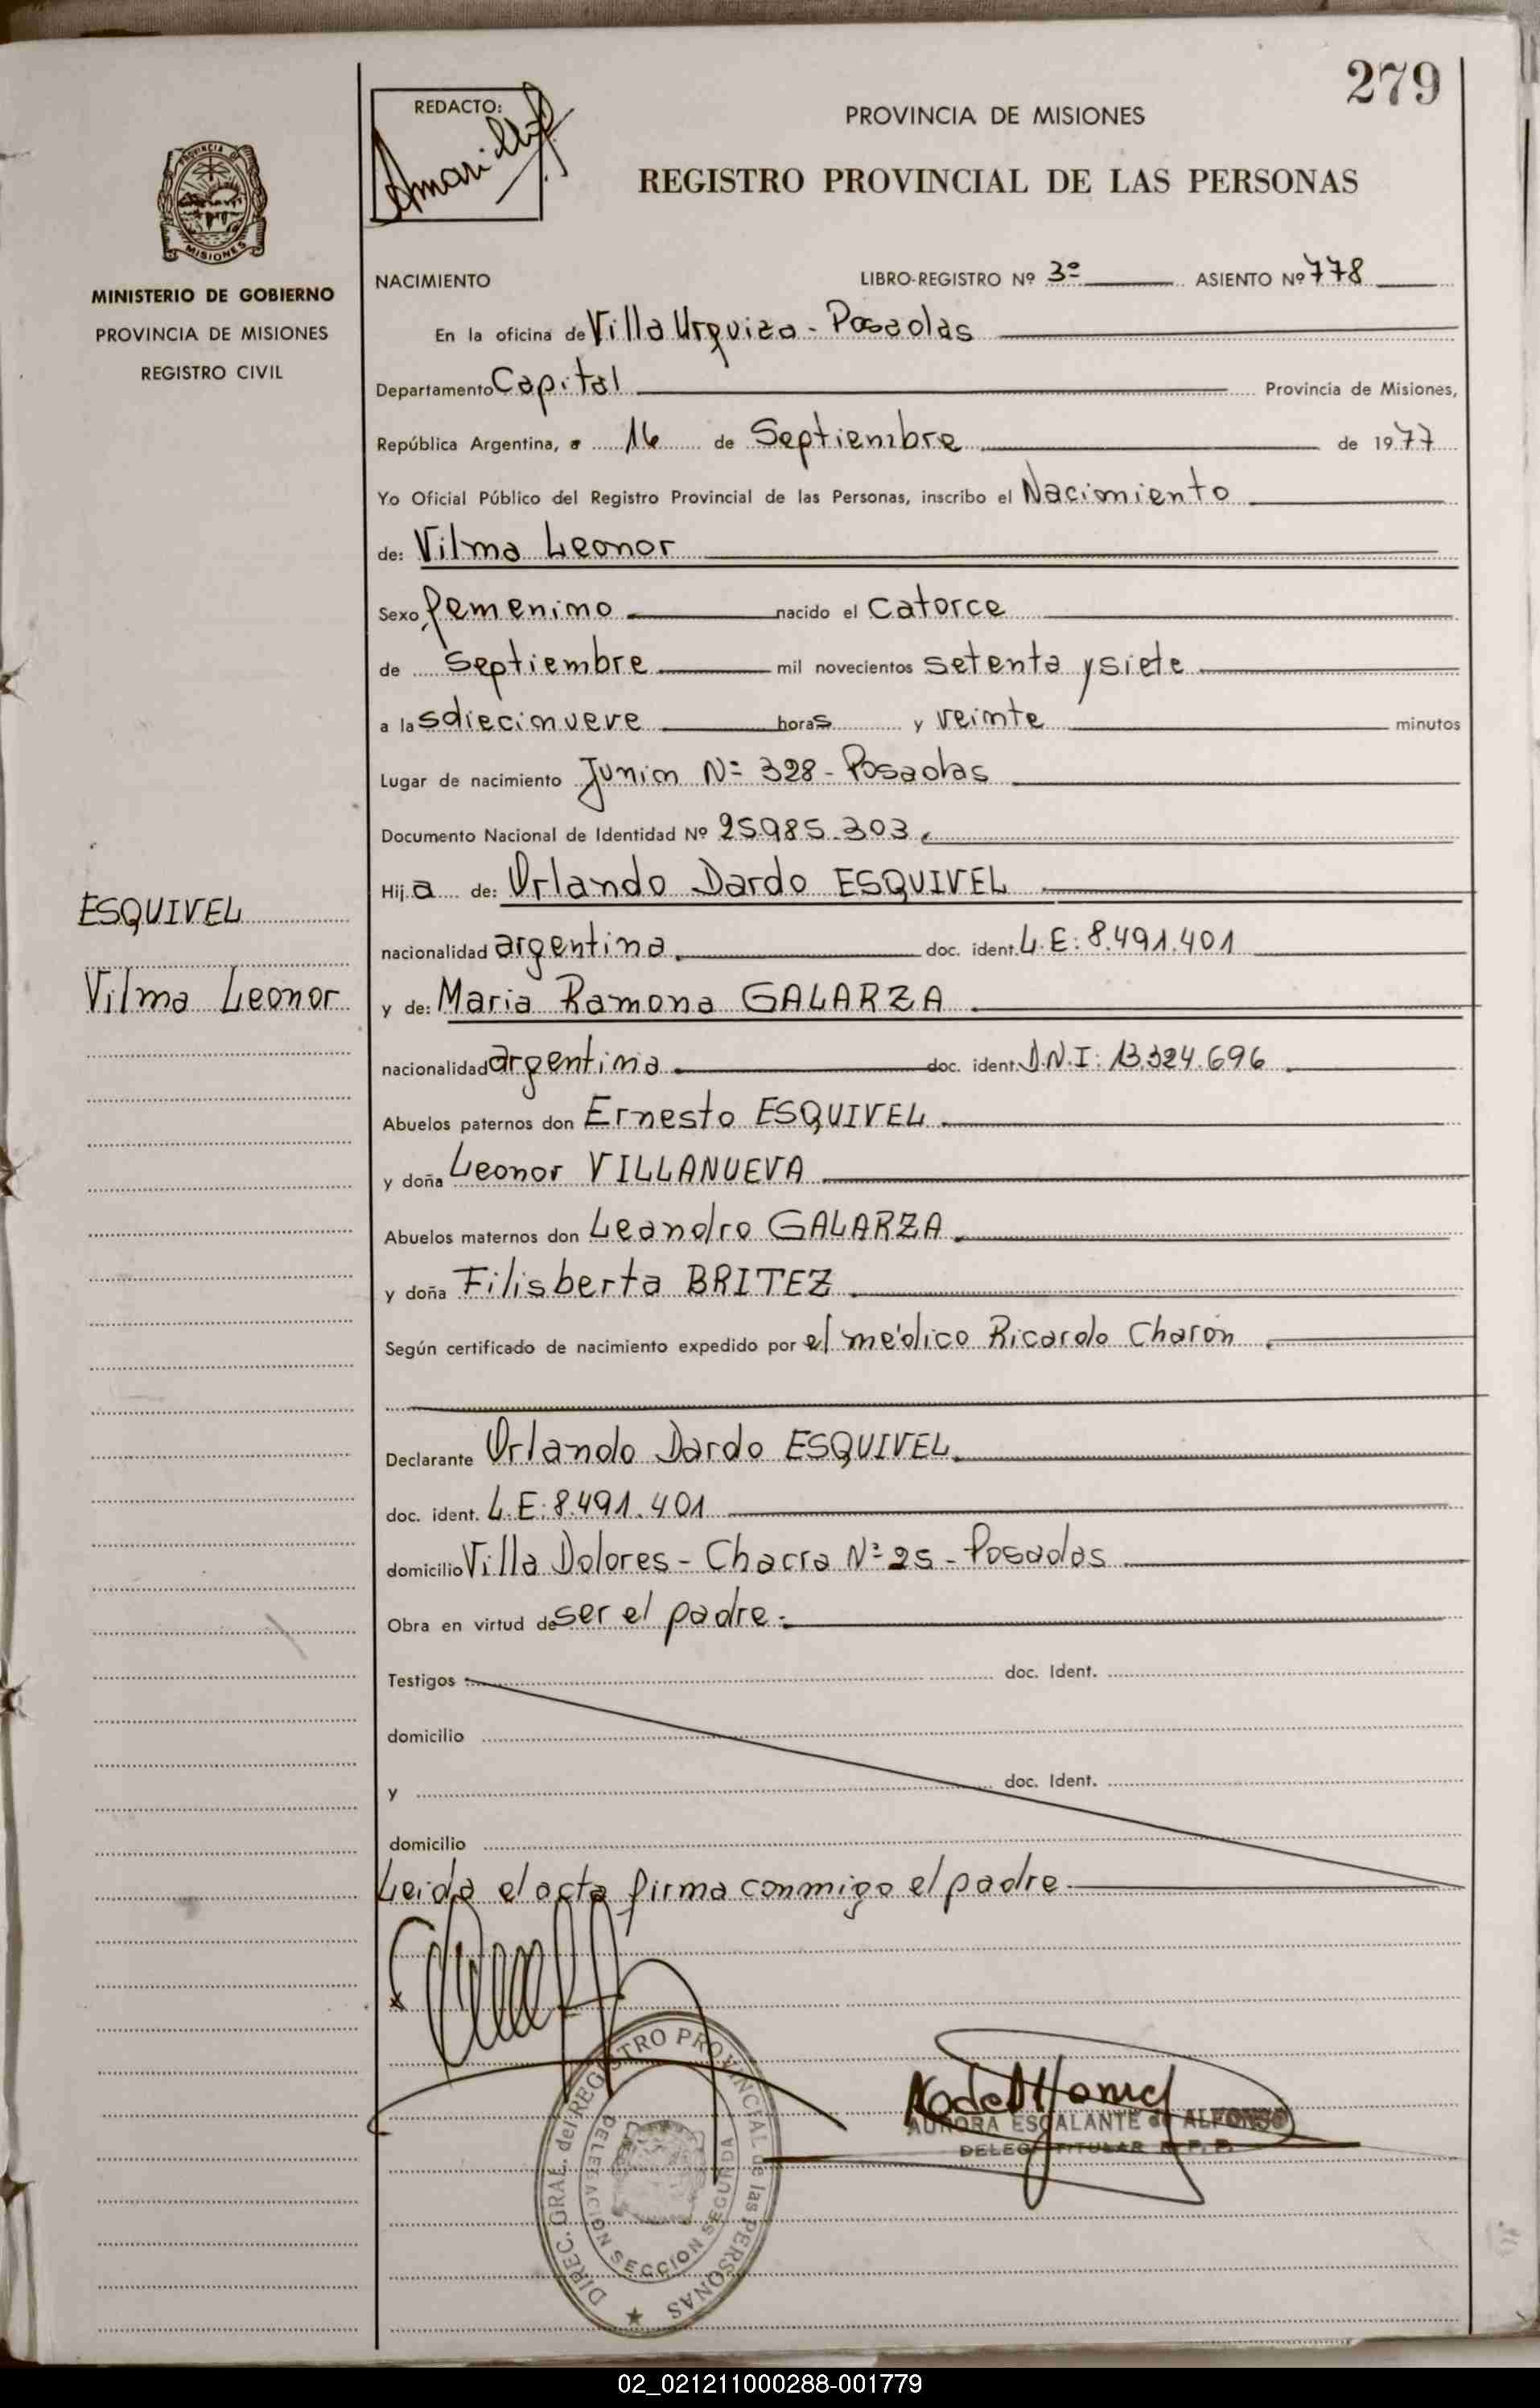 279
REDACTO:
PROVINCIA DE MISIONES
REGISTRO PROVINCIAL DE LAS PERSONAS
PROVINCIA DE
MISIONES
MINISTERIO DE GOBIERNO
PROVINCIA DE MISIONES
REGISTRO CIVIL
ESQUIVEL
Vilma Leonor
NACIMIENTO LIBRO-REGISTRO Nº 3º ASIENTO Nº 778
En la oficina de Villa Urquiza - Posadas
Departamento Capital Provincia de Misiones,
República Argentina, a 16 de Septiembre de 1977
Yo Oficial Público del Registro Provincial de las Personas, inscribo el Nacimiento
de: Vilma Leonor
Sexo femenino nacido el catorce
de septiembre mil novecientos setenta y siete
a las diecinueve horas y veinte minutos
Lugar de nacimiento Junin Nº 328 - Posadas
Documento Nacional de Identidad Nº 25.985.303.
Hija de: Orlando Dardo ESQUIVEL
nacionalidad argentina. doc. ident. L.E: 8.491.401
y de: Maria Ramona GALARZA
nacionalidad argentina doc. ident. D.N.I: 13.324.696
Abuelos paternos don Ernesto ESQUIVEL
y doña Leonor VILLANUEVA
Abuelos maternos don Leandro GALARZA
y doña Filisberta BRITEZ
Según certificado de nacimiento expedido por el médico Ricardo Charón
Declarante Orlando Dardo ESQUIVEL
doc. ident. L.E: 8.491.401
domicilio Villa Dolores - Chacra Nº 25 - Posadas
Obra en virtud de ser el padre.
Testigos doc. Ident.
domicilio
y doc. Ident.
domicilio
Leida el acta firma conmigo el padre
x
DIREC. GRAL. del REGISTRO PROVINCIAL de las PERSONAS
DELEGACION SECCION SEGUNDA
AURORA ESCALANTE de ALFONSO
DELEG. TITULAR R. P. P.
02_021211000288-001779